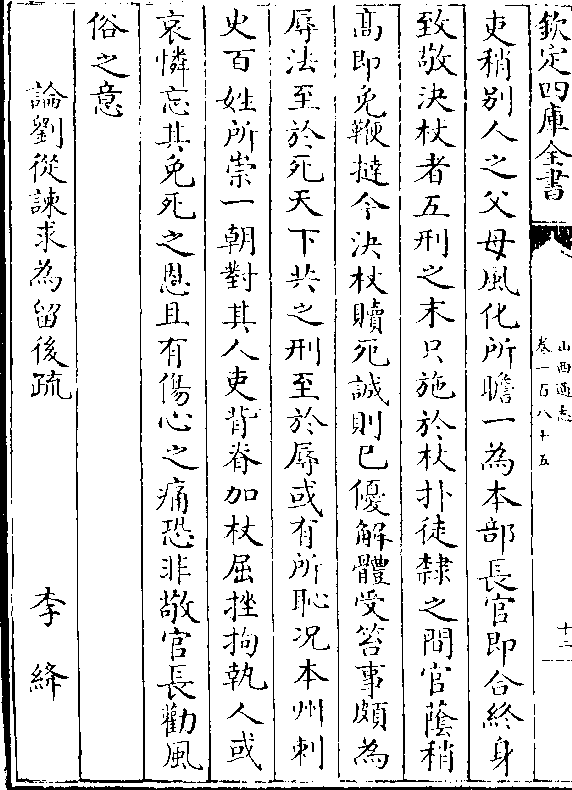 欽定四庫全書
山西通志
卷一百八十五
十二
吏稍别人之父母風化所瞻一為本部長官即合終身
致敬決杖者五刑之末只施於杖扑徒隸之間官蔭稍
髙即免鞭撻今決杖贖死誠則已優解體受笞事頗為
辱法至於死天下共之刑至於辱或有所恥况本州刺
史百姓所崇一朝對其人吏背脊加杖屈挫拘執人或
哀憐忘其免死之恩且有傷心之痛恐非敬官長勸風
俗之意
論劉從諫求為留後疏
李絳